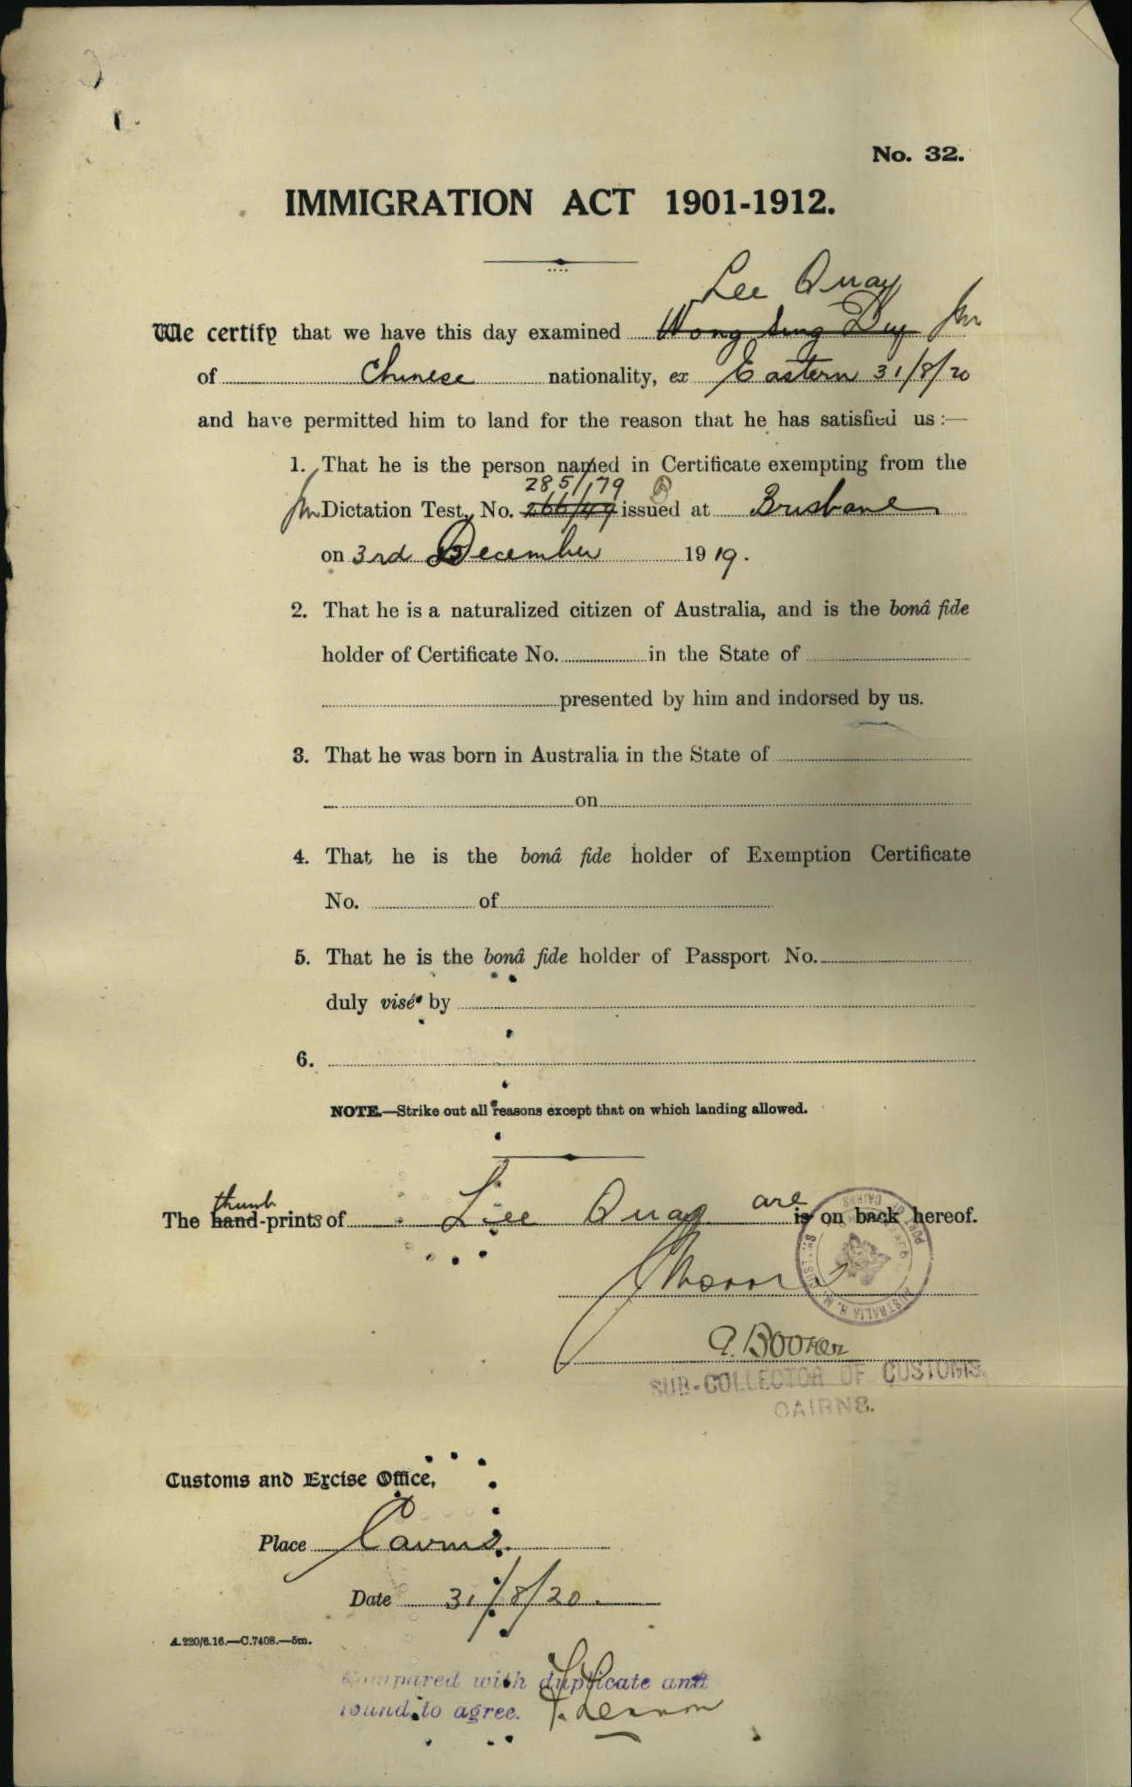 No. 32.
IMMIGRATION ACT 1901-1912.
Lee Quay
We certify that we have this day examined Wong Sing Duy
of Chinese nationality, ex Eastern 31/8/20
and have permitted him to land for the reason that he has satisfied us :—
1. That he is the person named in Certificate exempting from the
285/179
Dictation Test, No. 266/49 issued at Brisbane
on 3rd December 1919.
2. That he is a naturalized citizen of Australia, and is the bonâ fide
holder of Certificate No. in the State of
presented by him and indorsed by us.
3. That he was born in Australia in the State of
on
4. That he is the bonâ fide holder of Exemption Certificate
No. of
5. That he is the bonâ fide holder of Passport No.
duly visé by
6.
NOTE.—Strike out all reasons except that on which landing allowed.
thumb are
The hand-prints of Lee Quay is on back hereof.
SUB-COLLECTOR OF CUSTOMS.
CAIRNS.
Customs and Excise Office,
Place Cairns.
Date 31/8/20.
A.220/6.16.—C.7408.—5m.
Compared with duplicate and
found to agree.